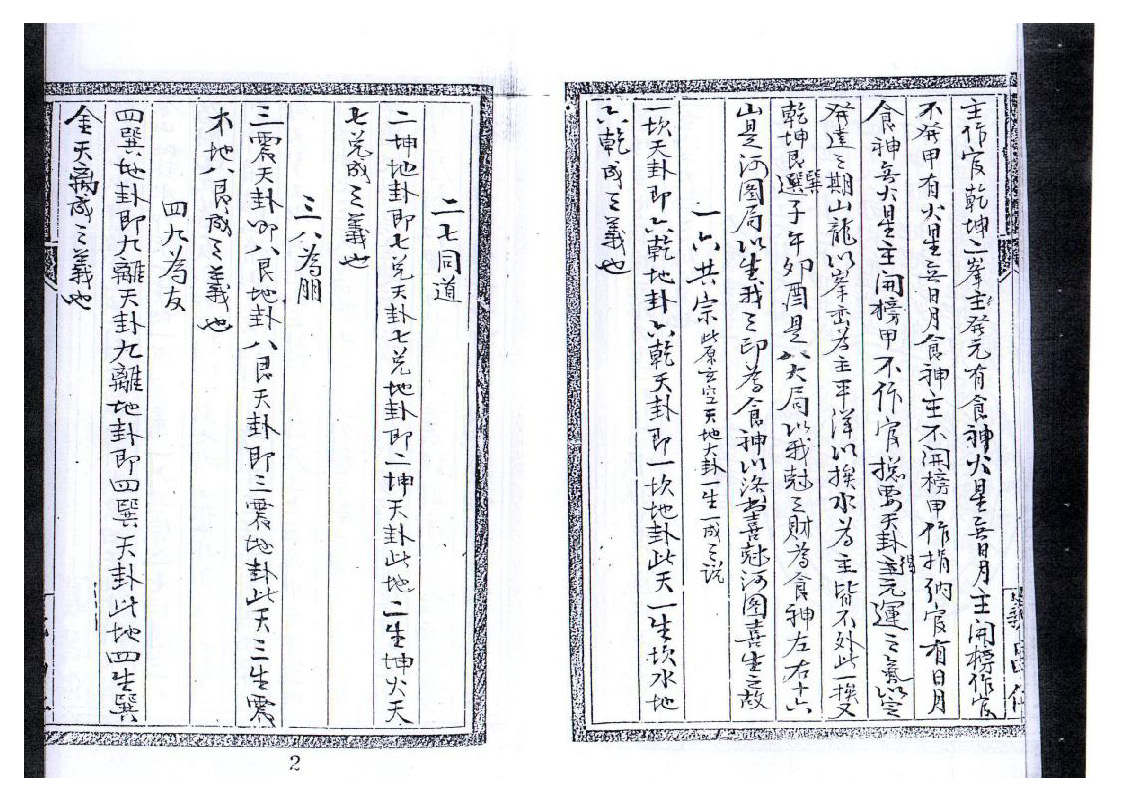 主作官乾坤二峯主發元有食神火星無日月主開榜作官
不發甲有火星無日月食神主不開榜甲作捐納官有日月
食神無火星主開榜甲不作官揔要天卦主得元運之氣以定
發達之期山龍以峯巒為主平洋以挨水為主皆不外此一挨又
乾坤艮巽選子午卯酉是八大局以我尅之財為食神左右十六
山是河圖局以生我之印為食神以洛書喜尅河图喜生之故
一六共宗此原玄空天地大卦一生一成之説
一坎天卦即六乾地卦六乾天卦即一坎地卦此天一生坎水地
六乾成之義也
二七同道
二坤地卦即七兌天卦七兌地卦即二坤天卦此地二生坤火天
七兌成之義也
三八為朋
三震天卦即八艮地卦八艮天卦即三震地卦此天三生震
木地八艮成之義也
四九為友
四巽地卦即九離天卦九離地卦即四巽天卦此地四生巽
金天離成之義也
2